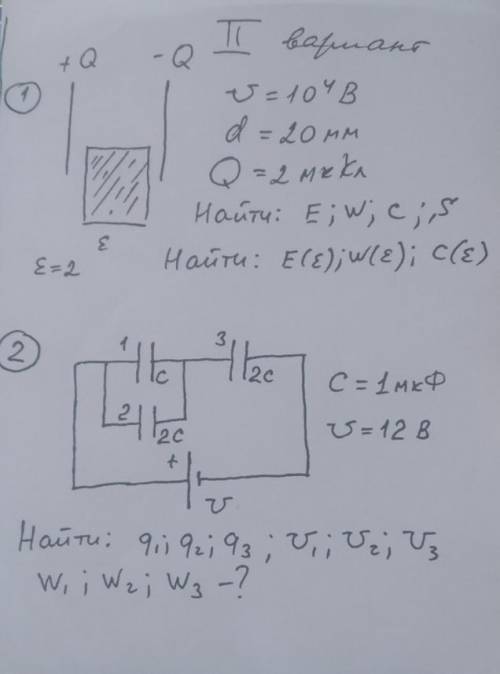 II вариант
+Q -Q
1
υ = 10⁴ В
d = 20 мм
Q = 2 мкКл
Найти: E; W; C; S
ε
ε=2
Найти: E(ε); W(ε); C(ε)
2
1 3
C 2C
2
2C
C = 1 мкФ
υ = 12 В
+
υ
Найти: q₁; q₂; q₃; υ₁; υ₂; υ₃
W₁; W₂; W₃ -?